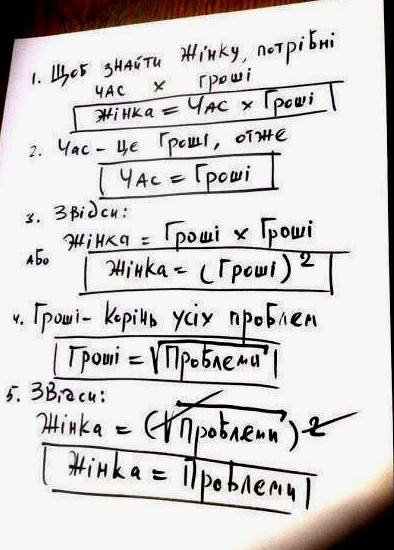 1. Щоб знайти жінку, потрібні
час х гроші
Жінка = Час х Гроші
2. Час - це Гроші, отже
Час = Гроші
3. Звідси:
Жінка = Гроші х Гроші
або
Жінка = (Гроші)²
4. Гроші - корінь усіх проблем
Гроші = √Проблеми
5. Звідси:
Жінка = (√Проблеми)²
Жінка = Проблеми